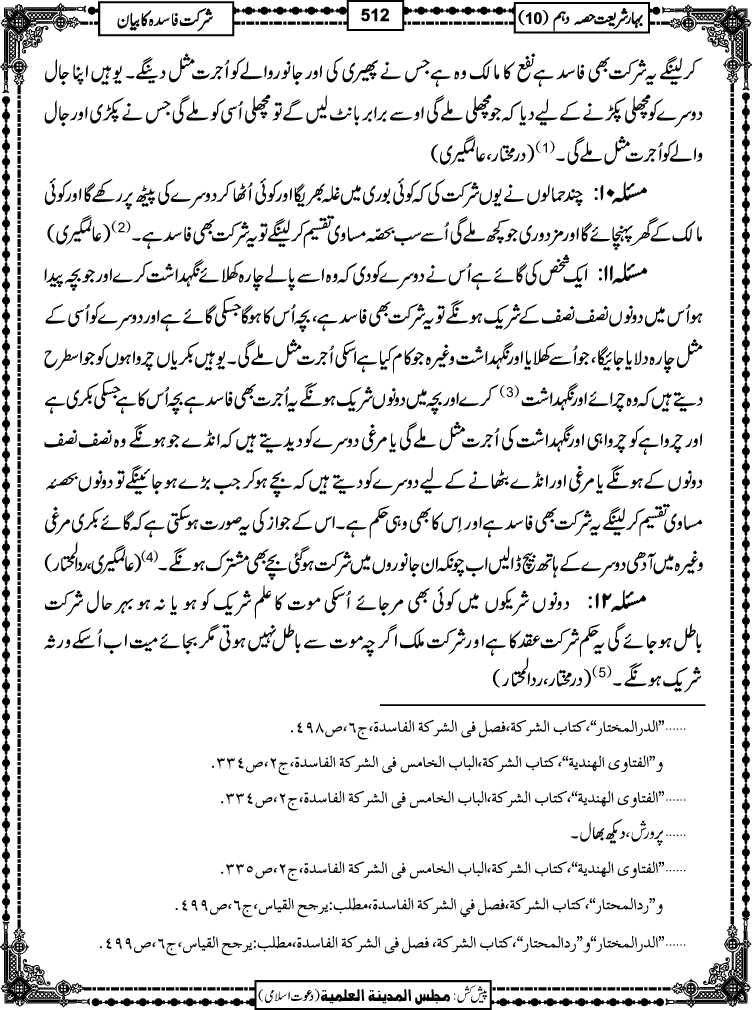 بہارِ شریعت حصہ دہم (10)
512
شرکت فاسدہ کا بیان
کرلینگے یہ شرکت بھی فاسد ہے نفع کا مالک وہ ہے جس نے پھیری کی اور جانور والے کو اُجرت مثل دینگے۔ یوہیں اپنا جال
دوسرے کو مچھلی پکڑنے کے لیے دیا کہ جو مچھلی ملے گی اوسے برابر بانٹ لیں گے تو مچھلی اُسی کو ملے گی جس نے پکڑی اور جال
والے کو اُجرت مثل ملے گی۔(1) (درمختار، عالمگیری)
مسئلہ ۱۰: چند حمالوں نے یوں شرکت کی کہ کوئی بوری میں غلہ بھریگا اور کوئی اُٹھا کر دوسرے کی پیٹھ پر رکھے گا اور کوئی
مالک کے گھر پہنچائے گا اور مزدوری جو کچھ ملے گی اُسے سب بحصّہ مساوی تقسیم کرلینگے تو یہ شرکت بھی فاسد ہے۔(2) (عالمگیری)
مسئلہ ۱۱: ایک شخص کی گائے ہے اُس نے دوسرے کو دی کہ وہ اسے پالے چارہ کھلائے نگہداشت کرے اور جو بچہ پیدا
ہو اُس میں دونوں نصف نصف کے شریک ہونگے تو یہ شرکت بھی فاسد ہے، بچہ اُس کا ہوگا جسکی گائے ہے اور دوسرے کو اُسی کے
مثل چارہ دلایا جائیگا، جو اُسے کھلایا اور نگہداشت وغیرہ جو کام کیا ہے اسکی اُجرت مثل ملے گی۔ یوہیں بکریاں چرواہوں کو جو اسطرح
دیتے ہیں کہ وہ چرائے اور نگہداشت(3) کرے اور بچہ میں دونوں شریک ہونگے یہ اُجرت بھی فاسد ہے بچہ اُس کا ہے جسکی بکری ہے
اور چرواہے کو چرواہی اور نگہداشت کی اُجرت مثل ملے گی یا مرغی دوسرے کو دیدیتے ہیں کہ انڈے جو ہونگے وہ نصف نصف
دونوں کے ہونگے یا مرغی اور انڈے بٹھانے کے لیے دوسرے کو دیتے ہیں کہ بچے ہوکر جب بڑے ہوجائینگے تو دونوں بحصّہ
مساوی تقسیم کرلینگے یہ شرکت بھی فاسد ہے اور اِس کا بھی وہی حکم ہے۔ اس کے جواز کی یہ صورت ہوسکتی ہے کہ گائے بکری مرغی
وغیرہ میں آدھی دوسرے کے ہاتھ بیچ ڈالیں اب چونکہ ان جانوروں میں شرکت ہوگئی بچے بھی مشترک ہونگے۔(4) (عالمگیری، ردالمحتار)
مسئلہ ۱۲: دونوں شریکوں میں کوئی بھی مرجائے اُسکی موت کا علم شریک کو ہو یا نہ ہو بہر حال شرکت
باطل ہوجائے گی یہ حکم شرکت عقد کا ہے اور شرکت ملک اگرچہ موت سے باطل نہیں ہوتی مگر بجائے میت اب اُسکے ورثہ
شریک ہونگے۔(5) (درمختار، ردالمحتار)
......”الدرالمختار“، کتاب الشرکة، فصل فی الشرکة الفاسدة، ج٦، ص٤٩٨.
و”الفتاوی الهندیة“، کتاب الشرکة، الباب الخامس فی الشرکة الفاسدة، ج٢، ص٣٣٤.
......”الفتاوی الهندیة“، کتاب الشرکة، الباب الخامس فی الشرکة الفاسدة، ج٢، ص٣٣٤.
......پرورش، دیکھ بھال۔
......”الفتاوی الهندیة“، کتاب الشرکة، الباب الخامس فی الشرکة الفاسدة، ج٢، ص٣٣٥.
و”ردالمحتار“، کتاب الشرکة، فصل في الشرکة الفاسدة، مطلب: یرجح القیاس، ج٦، ص٤٩٩.
......”الدرالمختار“ و”ردالمحتار“، کتاب الشرکة، فصل فی الشرکة الفاسدة، مطلب: یرجح القیاس، ج٦، ص٤٩٩.
پیش کش: مجلس المدینة العلمیة (دعوت اسلامی)